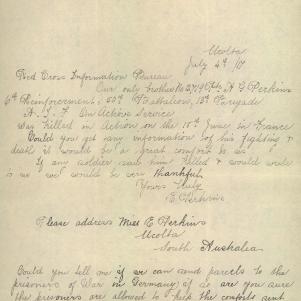 Ucolta
July 4th /17
Red Cross Information Bureau
Our only brother No 2749 Pte. H G Perkins
6th Reinforcement, 50th Battalion, 13th Brigade
A. I. F On Active Service
Was killed in Action on the 10th June in France
Could you get any information of his fighting &
death it would be a great comfort to us
If any soldier saw him killed & would write
to us we would be very thankful
Yours truly
E. Perkins
Please address Miss E Perkins
Ucolta
South Australia
Could you tell me if we can send parcels to the
prisoners of War in Germany if so are you sure
the prisoners are allowed to keep the comforts sent